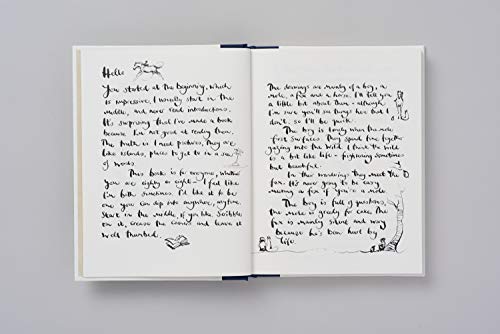 Hello
You started at the beginning, which
is impressive. I usually start in the
middle, and never read introductions.
It's surprising that I've made a book
because I'm not good at reading them.
The truth is I need pictures, they are
like islands, places to get to in a sea
of words.
This book is for everyone, whether
you are eighty or eight – I feel like
I'm both sometimes. I'd like it to be
one you can dip into anywhere, anytime.
Start in the middle, if you like. Scribble
on it, crease the corners and leave it
well thumbed.
The drawings are mainly of a boy, a
mole, a fox and a horse. I'll tell you
a little bit about them – although
I'm sure you'll see things here that I
don't. so I'll be quick.
The boy is lonely when the mole
first surfaces. They spend time together
gazing into the wild. I think the wild
is a bit like life – frightening sometimes
but beautiful.
In their wanderings they meet the
fox. It's never going to be easy
meeting a fox if you're a mole.
The boy is full of questions,
the mole is greedy for cake. The
fox is mainly silent and wary
because he's been hurt by
life.